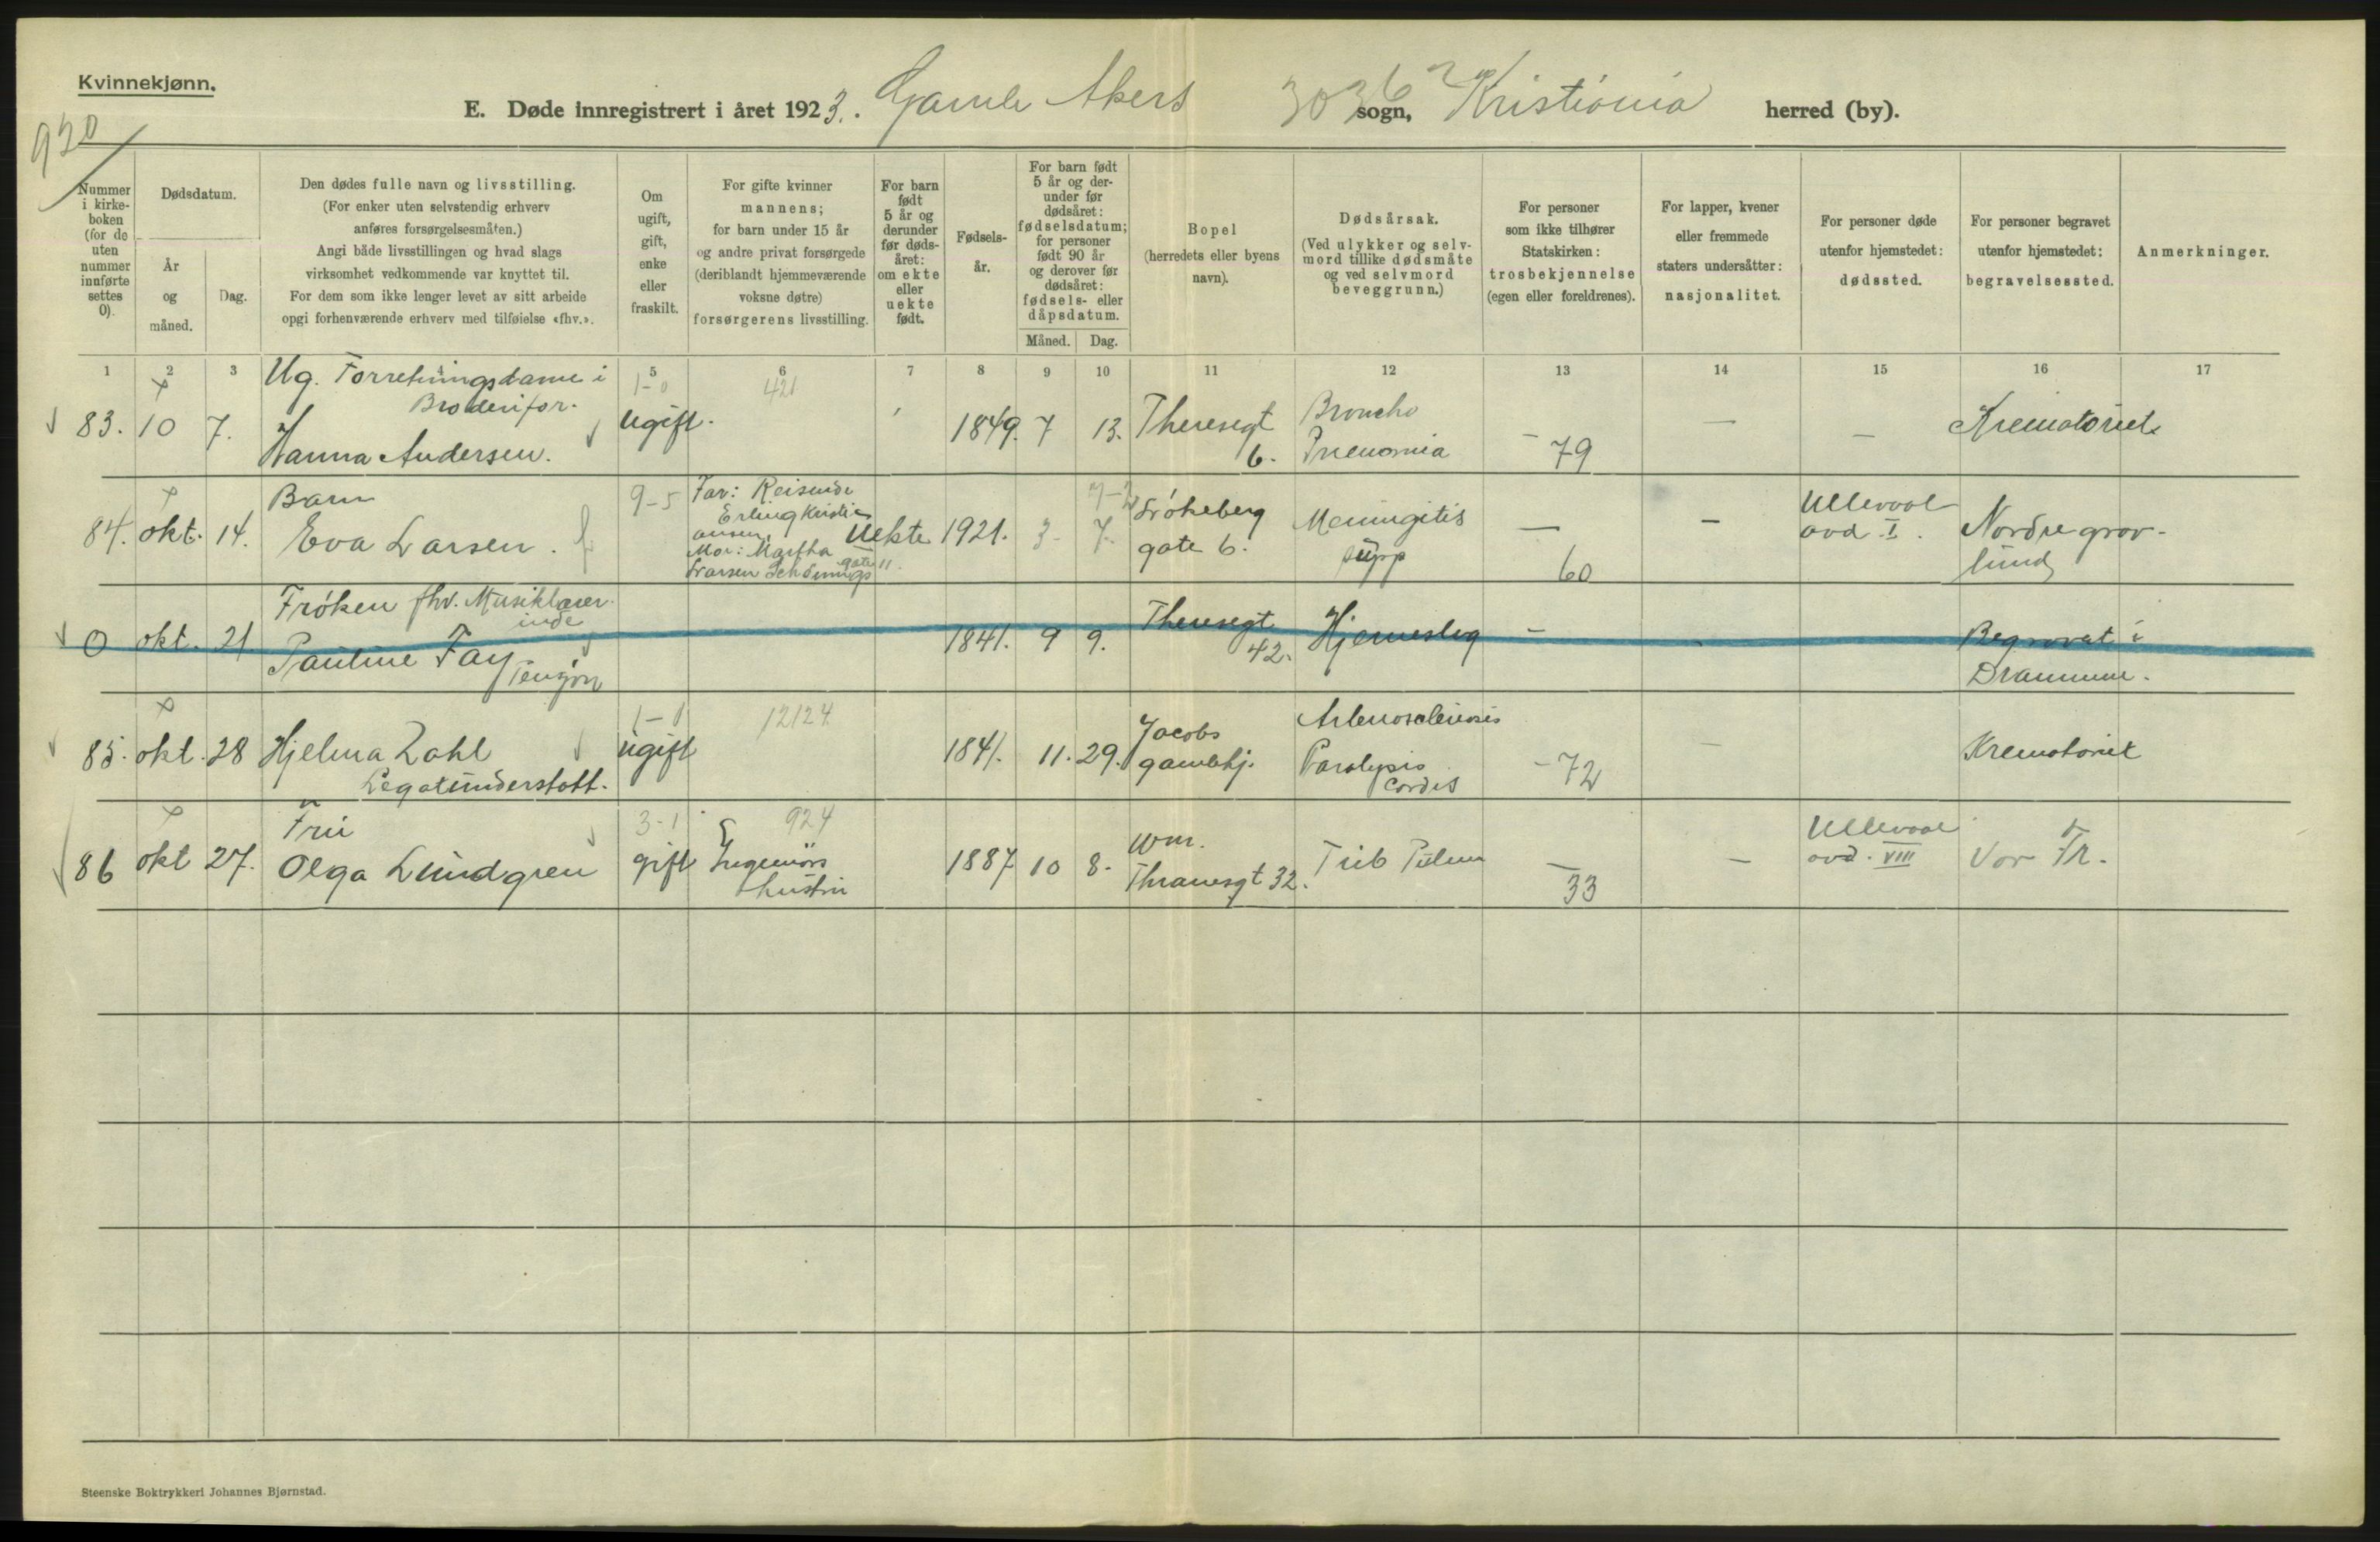 Kvinnekjønn.
E. Døde innregistrert i året 1923. Gamle Akers 3036 sogn, Kristiania herred (by).
930
Nummer i kirke-boken (for de uten nummer innførte settes 0).
Dødsdatum.
År og måned.
Dag.
Den dødes fulle navn og livsstilling.
(For enker uten selvstendig erhverv
anføres forsørgelsesmåten.)
Angi både livsstillingen og hvad slags
virksomhet vedkommende var knyttet til.
For dem som ikke lenger levet av sitt arbeide
opgi forhenværende erhverv med tilføielse «fhv.».
Om ugift, gift, enke eller fraskilt.
For gifte kvinner
mannens;
for barn under 15 år
og andre privat forsørgede
(deriblandt hjemmeværende
voksne døtre)
forsørgerens livsstilling.
For barn født 5 år og derunder før døds-året: om ekte eller uekte født.
Fødsels-år.
For barn født 5 år og der-under før dødsåret: fødselsdatum; for personer født 90 år og derover før dødsåret: fødsels- eller dåpsdatum.
Måned. Dag.
Bopel
(herredets eller byens
navn).
Dødsårsak.
(Ved ulykker og selv-
mord tillike dødsmåte
og ved selvmord
beveggrunn.)
For personer
som ikke tilhører
Statskirken:
trosbekjennelse
(egen eller foreldrenes).
For lapper, kvener
eller fremmede
staters undersåtter:
nasjonalitet.
For personer døde
utenfor hjemstedet:
dødssted.
For personer begravet
utenfor hjemstedet:
begravelsessted.
Anmerkninger.
1 2 3 4 5 6 7 8 9 10 11 12 13 14 15 16 17
Ug. Forretningsdame i
Broderifor.
1-0 421
83. 10 7. Hanna Andersen. ugift. 1849. 7 13. Theresegt 6. Broncho Pneuomia - 79 — — Krematoriet
Barn
9-5
84. okt. 14. Eva Larsen.
Far: Reisende
Erling Kristi
ansen,
Mor: Martha
Larsen Schønings
gate 11.
Uekte 1921. 3- 7. Løkeberg gate 6. Meningitis supp — 60 — Ullevaal avd. I. Nordre grav-
lund
Frøken fhv. Musiklærer-
inde
0 okt. 21 Pauline Fay 1841. 9 9. Theresegt 42. Hjerneslag — Begravet i
Drammen.
1-0 12124
85. okt. 28 Hjelma Dahl
Legatunderstøtt. ugift 1841. 11. 29. Jacobs
gamlehj. Arteriosclerosis
Paralysis
cordis - 72 — Krematoriet
Fru
3-1 924
86 okt 27. Olga Lundgren gift Ingeniørs
hustru 1887 10 8. Wm.
Thranesgt 32. Tub Pulm — 33 — Ullevaal
avd. VIII Vor Fr.
Steenske Boktrykkeri Johannes Bjørnstad.